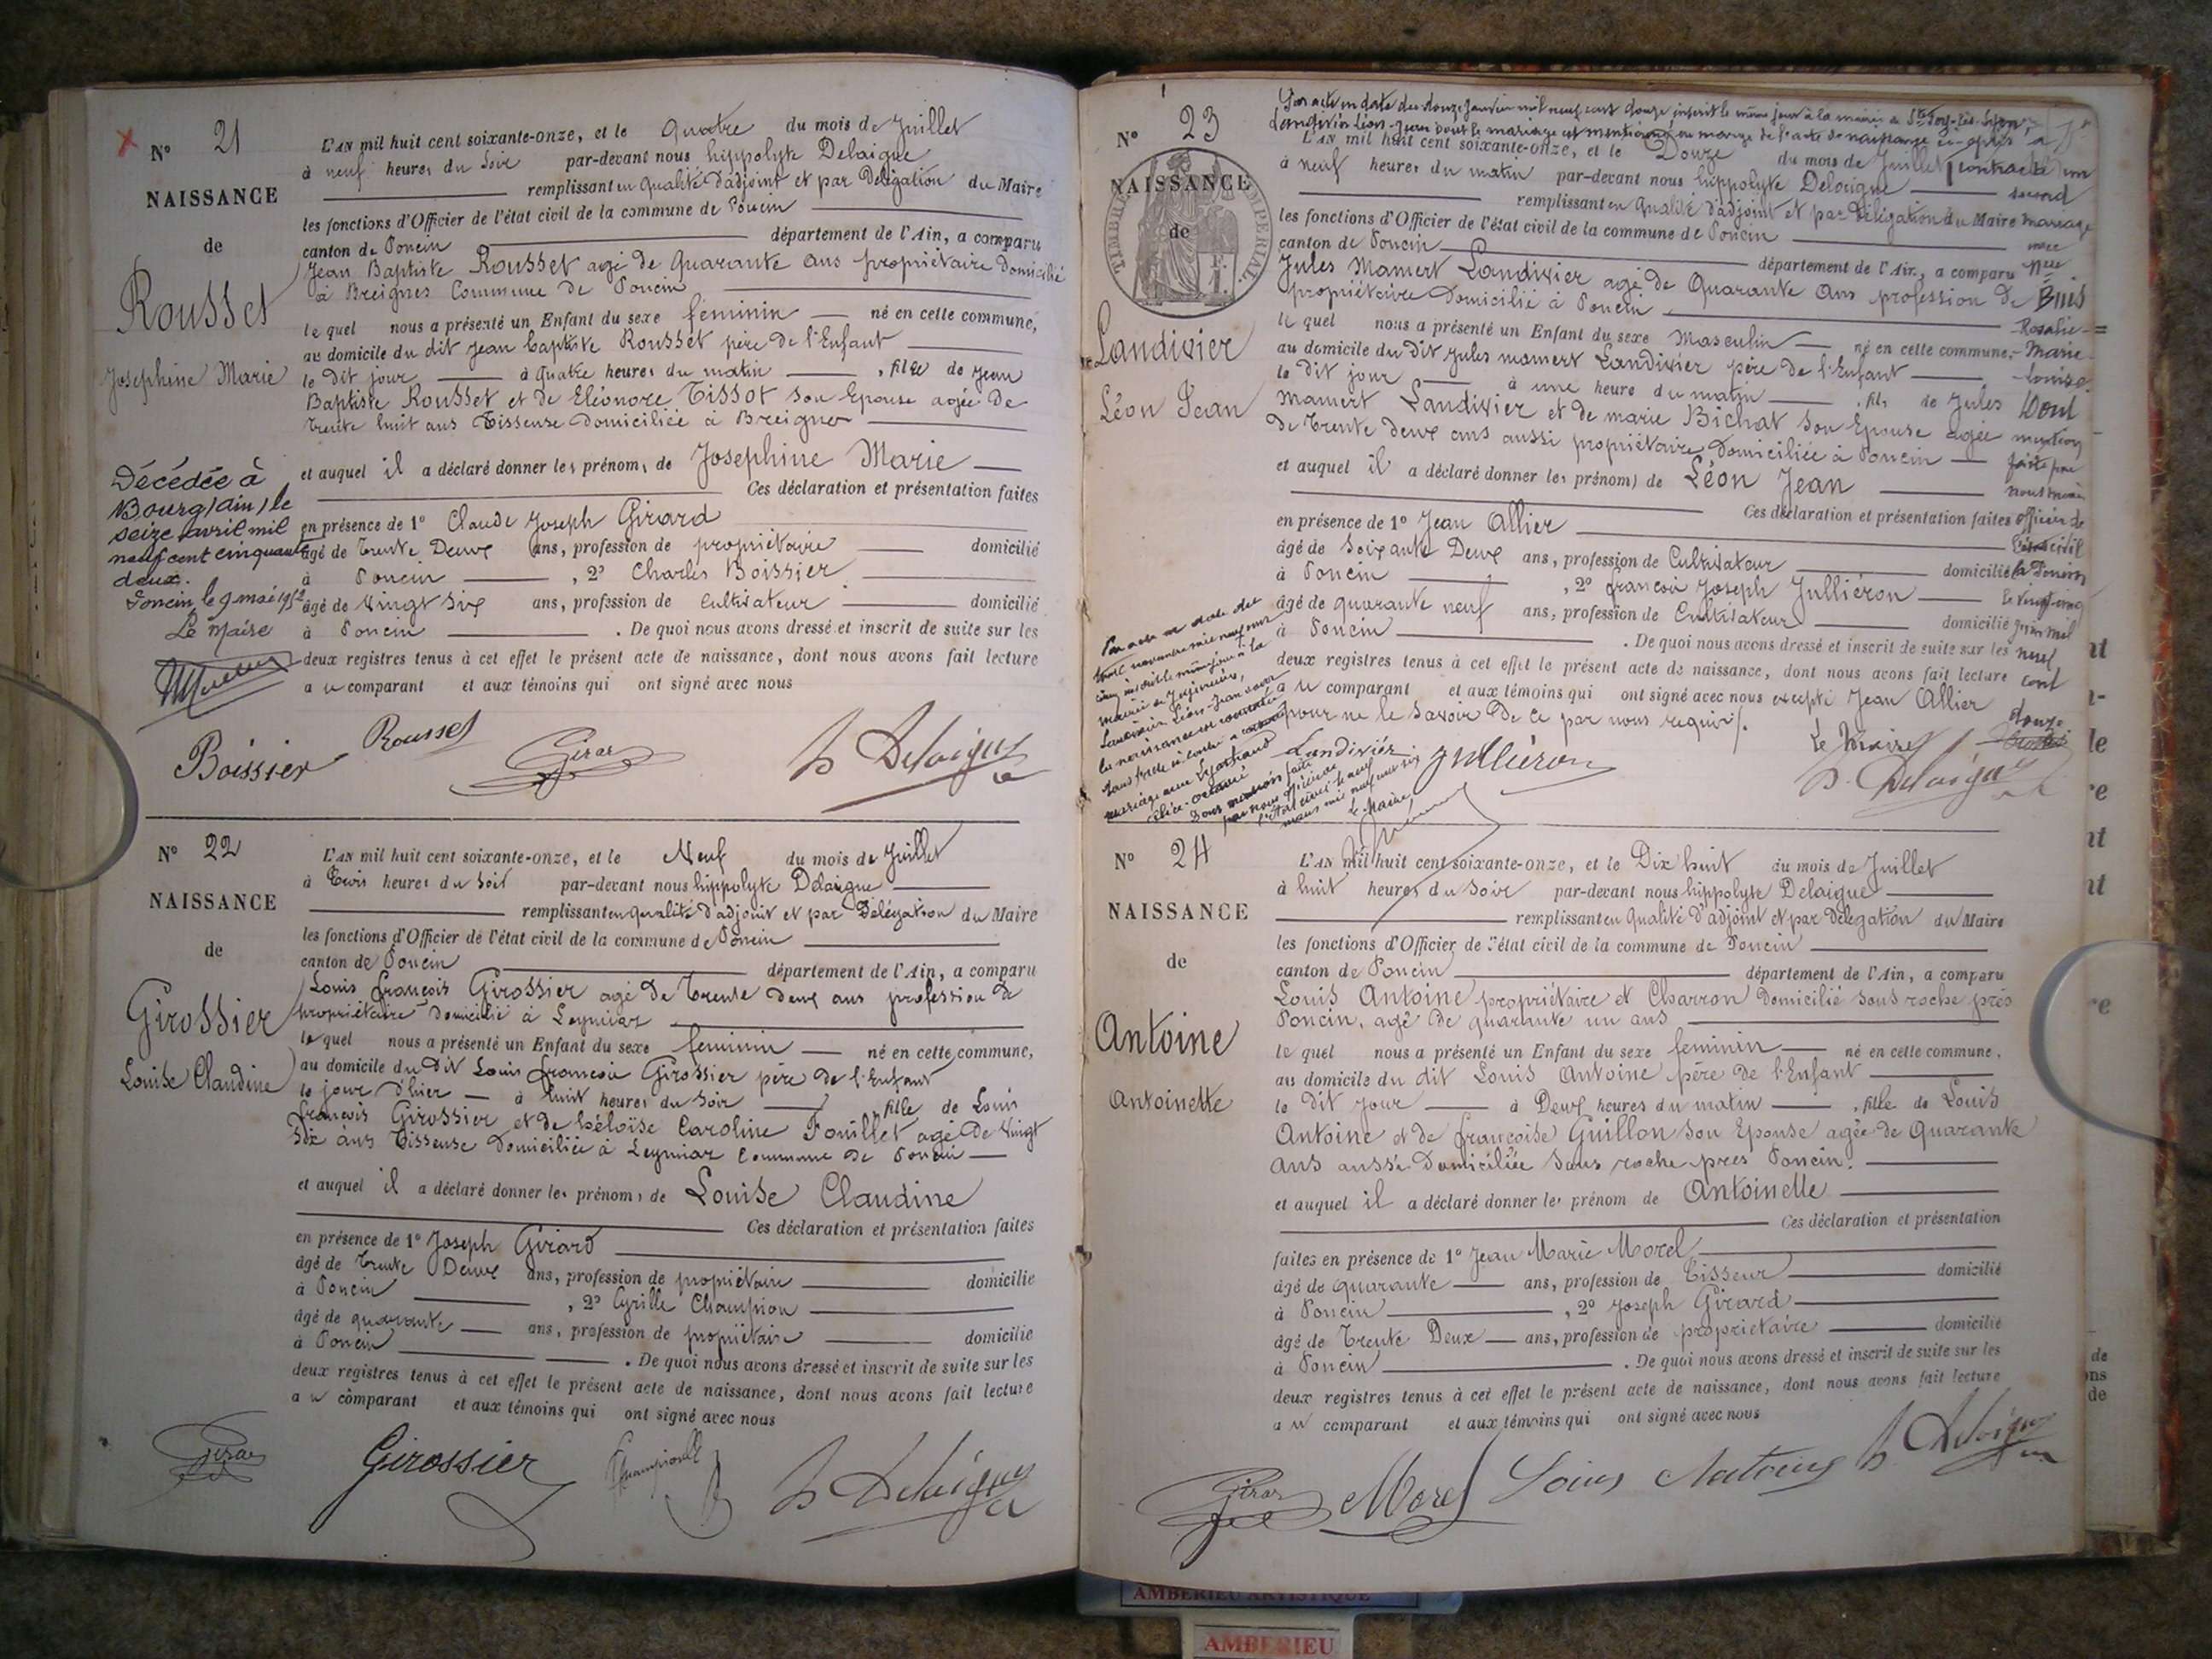 N° 21
NAISSANCE
de
Rousset
Josephine Marie
Décédée à
Bourg (Ain) le
seize avril mil
neuf cent cinquante
deux.
Poncin, le 9 mai 1952
Le Maire
L'AN mil huit cent soixante-onze, et le quatre du mois de Juillet
à neuf heures du soir par-devant nous hippolyte Delaigue
remplissant en qualité d'adjoint et par Délégation du Maire
les fonctions d'Officier de l'état civil de la commune de Poncin
canton de Poncin département de l'Ain, a comparu
Jean Baptiste Rousset agé de quarante ans propriétaire domicilié
à Breignes Commune de Poncin
le quel nous a présenté un Enfant du sexe féminin né en cette commune,
au domicile du dit Jean baptiste Rousset père de l'Enfant
le dit jour à quatre heures du matin , fille de Jean
Baptiste Rousset et de Eléonore Tissot son Epouse agée de
trente huit ans Tisseuse domiciliée à Breignes
et auquel il a déclaré donner les prénoms de Josephine Marie
Ces déclaration et présentation faites
en présence de 1° Claude Joseph Girard
âgé de trente Deux ans, profession de propriétaire domicilié
à Poncin , 2° Charles Boissier
âgé de vingt six ans, profession de cultivateur domicilié
à Poncin . De quoi nous avons dressé et inscrit de suite sur les
deux registres tenus à cet effet le présent acte de naissance, dont nous avons fait lecture
au comparant et aux témoins qui ont signé avec nous
Boissier Rousset Girard h Delaigue
N° 22
NAISSANCE
de
Girossier
Louise Claudine
L'AN mil huit cent soixante-onze, et le Neuf du mois de Juillet
à trois heures du soir par-devant nous hippolyte Delaigue
remplissant en qualité d'adjoint et par Délégation du Maire
les fonctions d'Officier de l'état civil de la commune de Poncin
canton de Poncin département de l'Ain, a comparu
Louis françois Girossier agé de trente deux ans profession de
propriétaire domicilié à Leymiaz
le quel nous a présenté un Enfant du sexe feminin né en cette commune,
au domicile du dit Louis françois Girossier père de l'Enfant
le jour d'hier à huit heures du soir , fille de Louis
françois Girossier et de héloïse Caroline Fouillet agé de vingt
six ans Tisseuse domiciliée à Leymiaz commune de Poncin
et auquel il a déclaré donner les prénoms de Louise Claudine
Ces déclaration et présentation faites
en présence de 1° Joseph Girard
âgé de trente Deux ans, profession de propriétaire domicilié
à Poncin , 2° Cyrille Champion
âgé de quarante ans, profession de propriétaire domicilié
à Poncin . De quoi nous avons dressé et inscrit de suite sur les
deux registres tenus à cet effet le présent acte de naissance, dont nous avons fait lecture
au comparant et aux témoins qui ont signé avec nous
Girard Girossier h Delaigue
Par acte en date du douze Janvier mil neuf cent douze inscrit le même jour à la mairie de Ste Foy-les-Lyon,
Landivier Léon-Jean dont le mariage est mentionné en marge de l'acte de naissance ci-après a
contracté un
second
mariage
avec
Buis
Rosalie
Marie
Louise.
Dont
mention
faite par
nous maire
officier de
l'état civil
à Poncin
le vingt-cinq
Juin mil
neuf
cent
douze
Le Maire
N° 23
TIMBRE IMPERIAL
NAISSANCE
de
Landivier
Léon Jean
Par acte en date du
novembre mil neuf cent
cinq inscrit le même jour à la
mairie de
Landivier Léon-Jean dont
la naissance est constatée
dans l'acte ci-contre a contracté
mariage avec
Dont mention faite
par nous officier de
l'état civil le neuf
mars mil neuf cent six
Le Maire,
L'AN mil huit cent soixante-onze, et le Douze du mois de Juillet
à neuf heures du matin par-devant nous hippolyte Delaigue
remplissant en qualité d'adjoint et par Délégation du Maire
les fonctions d'Officier de l'état civil de la commune de Poncin
canton de Poncin département de l'Ain, a comparu
Jules Mamert Landivier agé de quarante ans profession de
propriétaire domicilié à Poncin
le quel nous a présenté un Enfant du sexe Masculin né en cette commune,
au domicile du dit Jules mamert Landivier père de l'Enfant
le dit jour à une heure du matin , fils de Jules
mamert Landivier et de marie Bichat son Epouse agée
de trente deux ans aussi propriétaire domiciliée à Poncin
et auquel il a déclaré donner les prénoms de Léon Jean
Ces déclaration et présentation faites
en présence de 1° Jean Allier
âgé de soixante Deux ans, profession de Cultivateur domicilié
à Poncin , 2° françois Joseph Julliéron
âgé de quarante neuf ans, profession de Cultivateur domicilié
à Poncin . De quoi nous avons dressé et inscrit de suite sur les
deux registres tenus à cet effet le présent acte de naissance, dont nous avons fait lecture
au comparant et aux témoins qui ont signé avec nous excepté Jean Allier
pour ne le savoir de ce par nous requis.
Landivier Julliéron h. Delaigue
N° 24
NAISSANCE
de
Antoine
Antoinette
L'AN mil huit cent soixante-onze, et le Dix huit du mois de Juillet
à huit heures du soir par-devant nous hippolyte Delaigue
remplissant en qualité d'adjoint et par délégation du Maire
les fonctions d'Officier de l'état civil de la commune de Poncin
canton de Poncin département de l'Ain, a comparu
Louis Antoine propriétaire et Charron domicilié sous roche près
Poncin, agé de quarante un ans
le quel nous a présenté un Enfant du sexe feminin né en cette commune,
au domicile du dit Louis Antoine père de l'Enfant
le dit jour à Deux heures du matin , fille de Louis
Antoine et de françoise Guillon son Epouse agée de quarante
ans aussi domiciliée sous roche près Poncin.
et auquel il a déclaré donner le prénom de Antoinette
Ces déclaration et présentation
faites en présence de 1° Jean Marie Morel
âgé de quarante ans, profession de Tisseur domicilié
à Poncin , 2° Joseph Girard
âgé de trente Deux ans, profession de propriétaire domicilié
à Poncin . De quoi nous avons dressé et inscrit de suite sur les
deux registres tenus à cet effet le présent acte de naissance, dont nous avons fait lecture
au comparant et aux témoins qui ont signé avec nous
Girard Morel Louis Antoine h Delaigue
AMBERIEU ARTISTIQUE
AMBERIEU